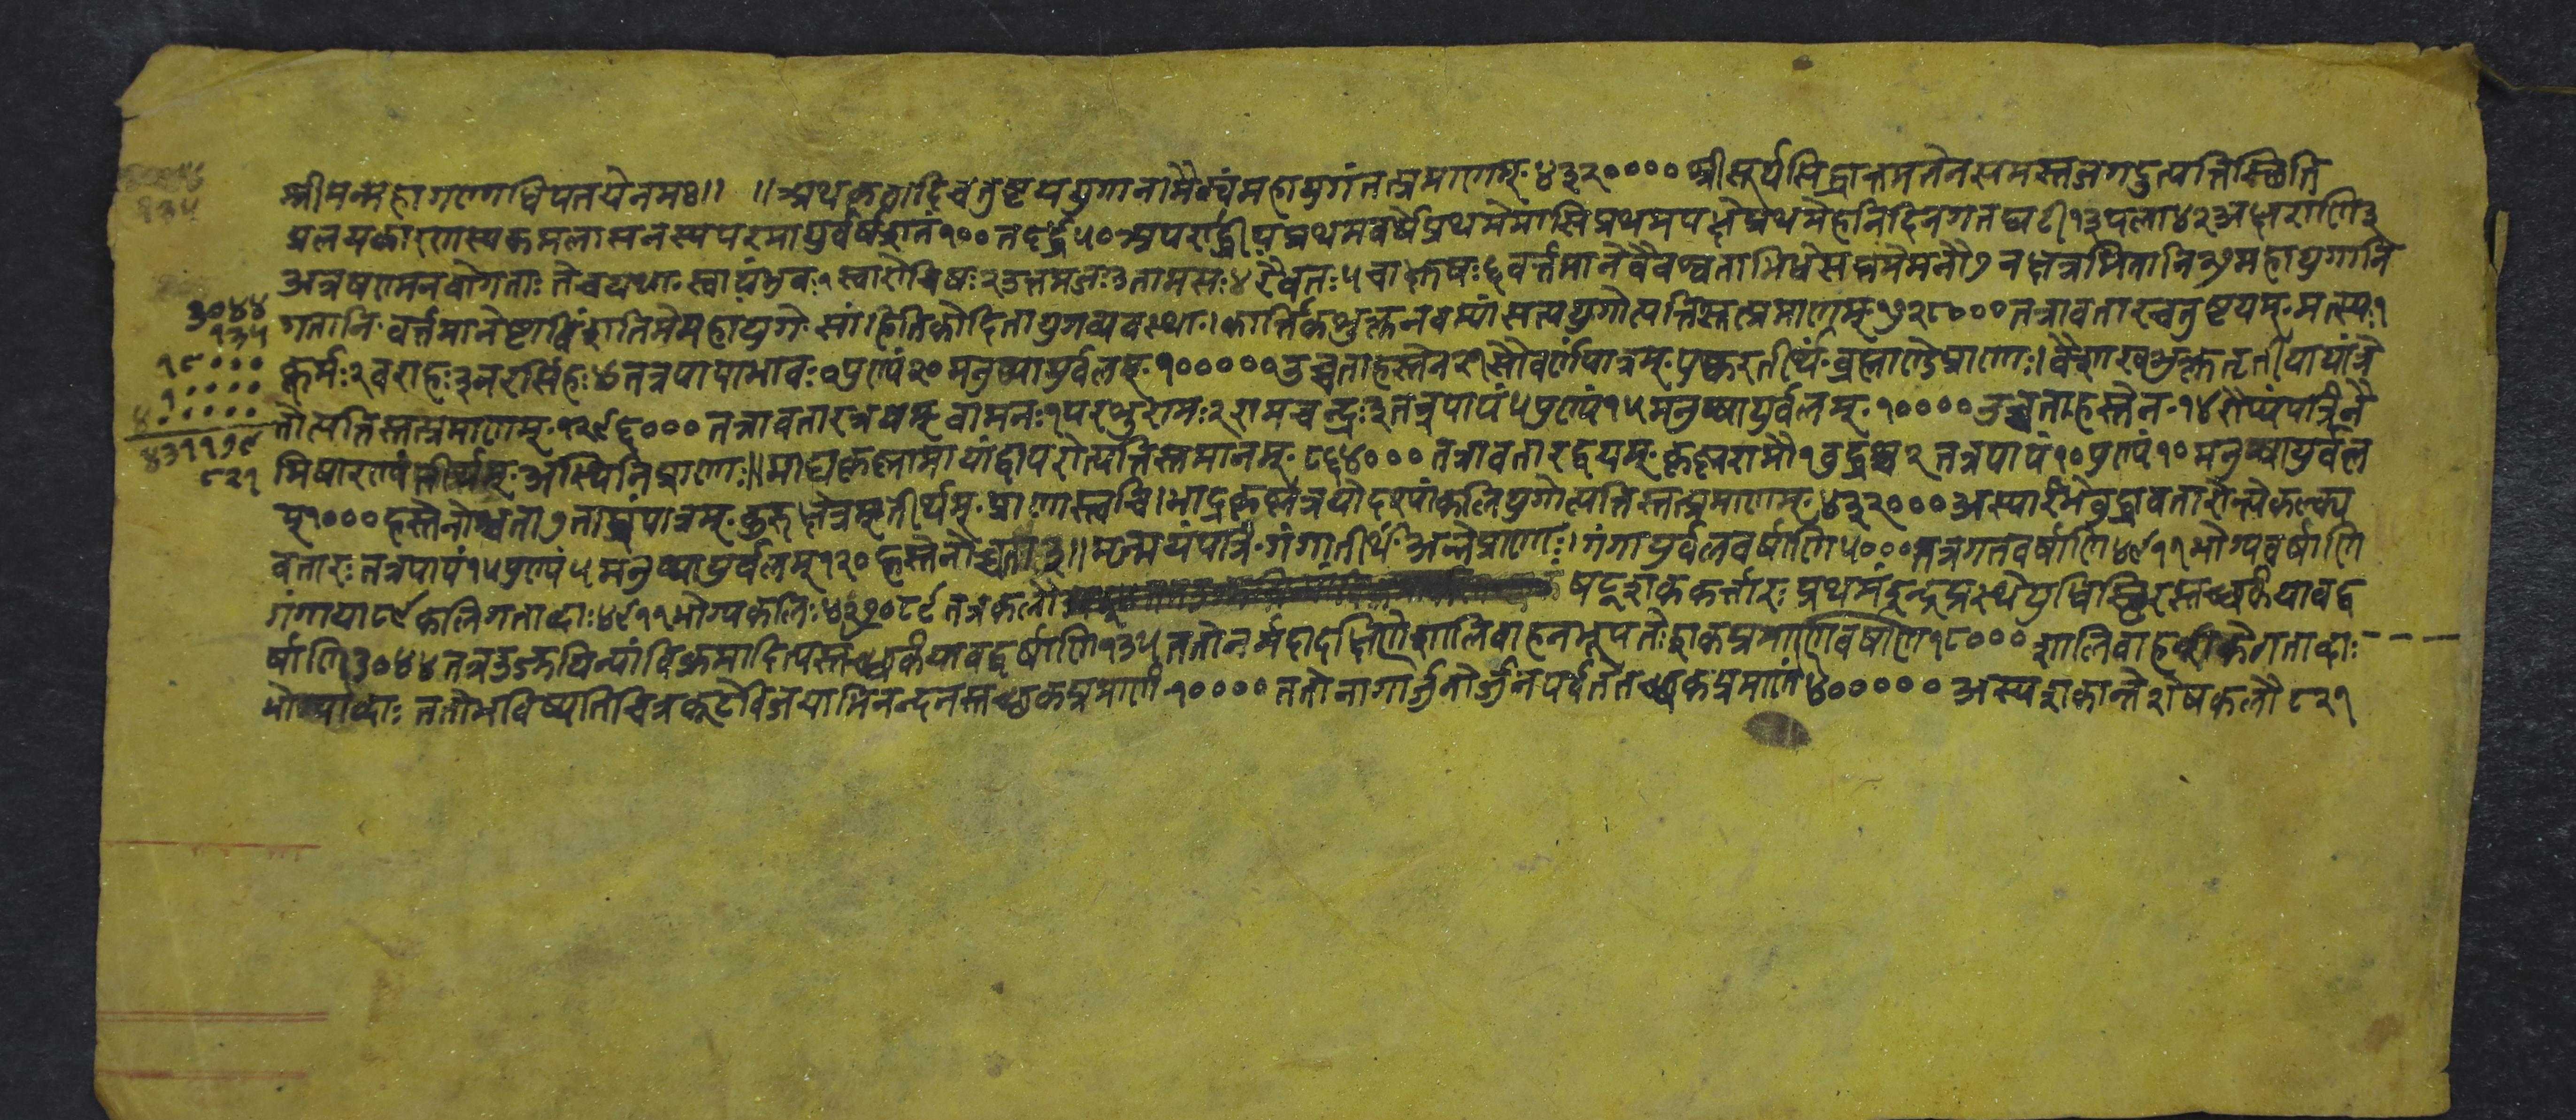 श्रीमन्महागणाधिपतयेनमः॥ ॥अथकृतादिचतुष्टययुगानामैक्यंमहायुगंतत्प्रमाणम्·४३२०००० श्रीसूर्यसिद्धान्तमतेनसमस्तजगदुत्पत्तिस्थिति
प्रलयकारणस्यकमलासनस्यपरमायुर्वर्षशतं१००तदर्द्धं५०अपरार्द्धीयंप्रथमवर्षेप्रथमेमासिप्रथमपक्षेप्रथमेहनिदिनगतघटी१३पला४२अक्षराणि३
अत्रषण्मनवोगताः तेचयथा·स्वायंभुवः१स्वारोचिषः२उत्तमजः३तामसः४रैवतः५चाक्षुषः६वर्त्तमानेवैवश्वताभिधेसप्तमेमनौ७नक्षत्रमितानि२७महायुगानि
गतानि·वर्त्तमानेष्टाविंशतिमेमहायुगे·सांहितिकोदितायुगव्यवस्था।कार्त्तिकशुक्लनवम्यांसत्ययुगोत्पत्तिस्तत्प्रमाणम्·१७२८०००तत्रावतारचतुष्टयम्·मत्स्यः१
कूर्मः२वराहः३नरसिंहः४तत्रपापाभावः०पुण्यं२०मनुष्यायुर्वलम्·१०००००उच्चताहस्तेन२१सौवर्णपात्रम्·पुष्करतीर्थं·ब्रह्माण्डेप्राणः।वैशाखशुक्लतृतीयायांत्रे
तोत्पत्तिस्तत्प्रमाणम्·१२९६०००तत्रावतारत्रयम्·वामनः१परशुरामः२रामचन्द्रः३तत्रपापं५पुण्यं१५मनुष्यायुर्वलम्·१००००उच्चताहस्तेन·१४रौप्यंपात्रंनै
मिषारण्यंतीर्थम्·अस्थिनिप्राणः॥माघकृष्णामायांद्वापरोत्पत्तिस्तमानम्·८६४०००तत्रावतारद्वयम्·कृष्णरामौ१वुद्धश्च२तत्रपापं१०पुण्यं१०मनुष्यायुर्वल
म्१०००हस्तेनोच्चता७ताम्रंपात्रम्·कुरुक्षेत्रम्तीर्थम्·प्राणस्त्वचि।भाद्रकृष्णत्रयोदश्यांकलियुगोत्पत्तिस्तत्प्रमाणम्·४३२०००अस्यारंभेवुद्धावतारोन्त्येकल्क्य
वतारःतत्रपापं१५पुण्यं५मनुष्यायुर्वलम्१२०हस्तेनोच्चता३॥मृण्मयंपात्रं·गंगातीर्थं·अन्नेप्राणः।गंगायुर्वलवर्षाणि५०००तत्रगतवर्षाणि४९११भोग्यवर्षाणि
गंगाया८९कलिगताव्दाः४९११भोग्यकलिः४२७०८९तत्रकलौ षट्शककर्त्तारःप्रथमंइन्द्रप्रस्थेयुधिष्ठिरस्तच्छकंयावद्व
र्षाणि३०४४तत्रउज्जयिन्यांविक्रमादित्यस्तच्छकंयावद्वर्षाणि१३५ततोनर्मदादक्षिणेशालिवाहनभूपतेःशकप्रमाणंवर्षाणि१८०००शालिवाहशकेगताव्दाः---
भोग्याव्दाः ततोभविष्यतिचित्रकूटेविजयाभिनन्दनस्तच्छकप्रमाणं·१००००ततोनागार्जुनोर्जुनपर्वतेतच्छकप्रमाणं४०००००अस्यशकान्तेशेषकलौ८२१
३०४४
१३५
१८०००
१००००
४०००००
४३११७९
८२१
१३५